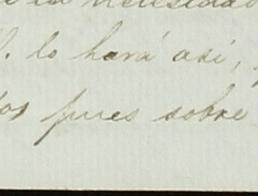 la necesidad
lo hará así,
pues sobre